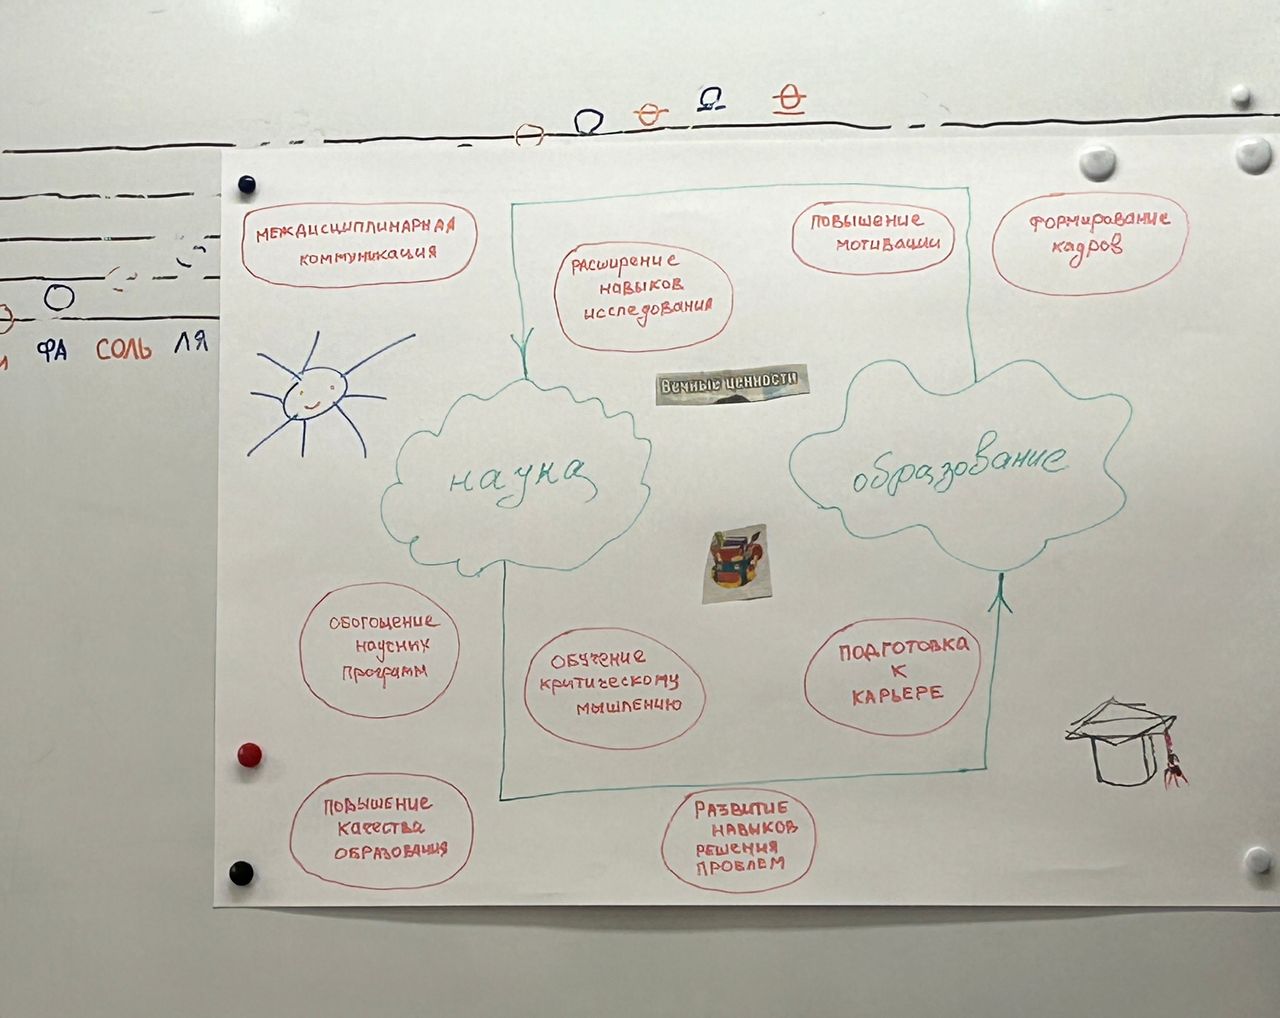 МЕЖДИСЦИПЛИНАРНАЯ
КОММУНИКАЦИЯ
РАСШИРЕНИЕ
НАВЫКОВ
исследования
ПОВЫШЕНИЕ
МОТИВАЦИИ
ФОРМИРОВАНИЕ
кадров
ФА СОЛЬ ЛЯ
Вечные ценности
наука
образование
ОБОГОЩЕНИЕ
научных
программ
ОБУЧЕНИЕ
КРИТИЧЕСКОМУ
МЫШЛЕНИЮ
ПОДГОТОВКА
К
КАРЬЕРЕ
ПОВЫШЕНИЕ
качества
ОБРАЗОВАНИЯ
РАЗВИТИЕ
НАВЫКОВ
РЕШЕНИЯ
ПРОБЛЕМ